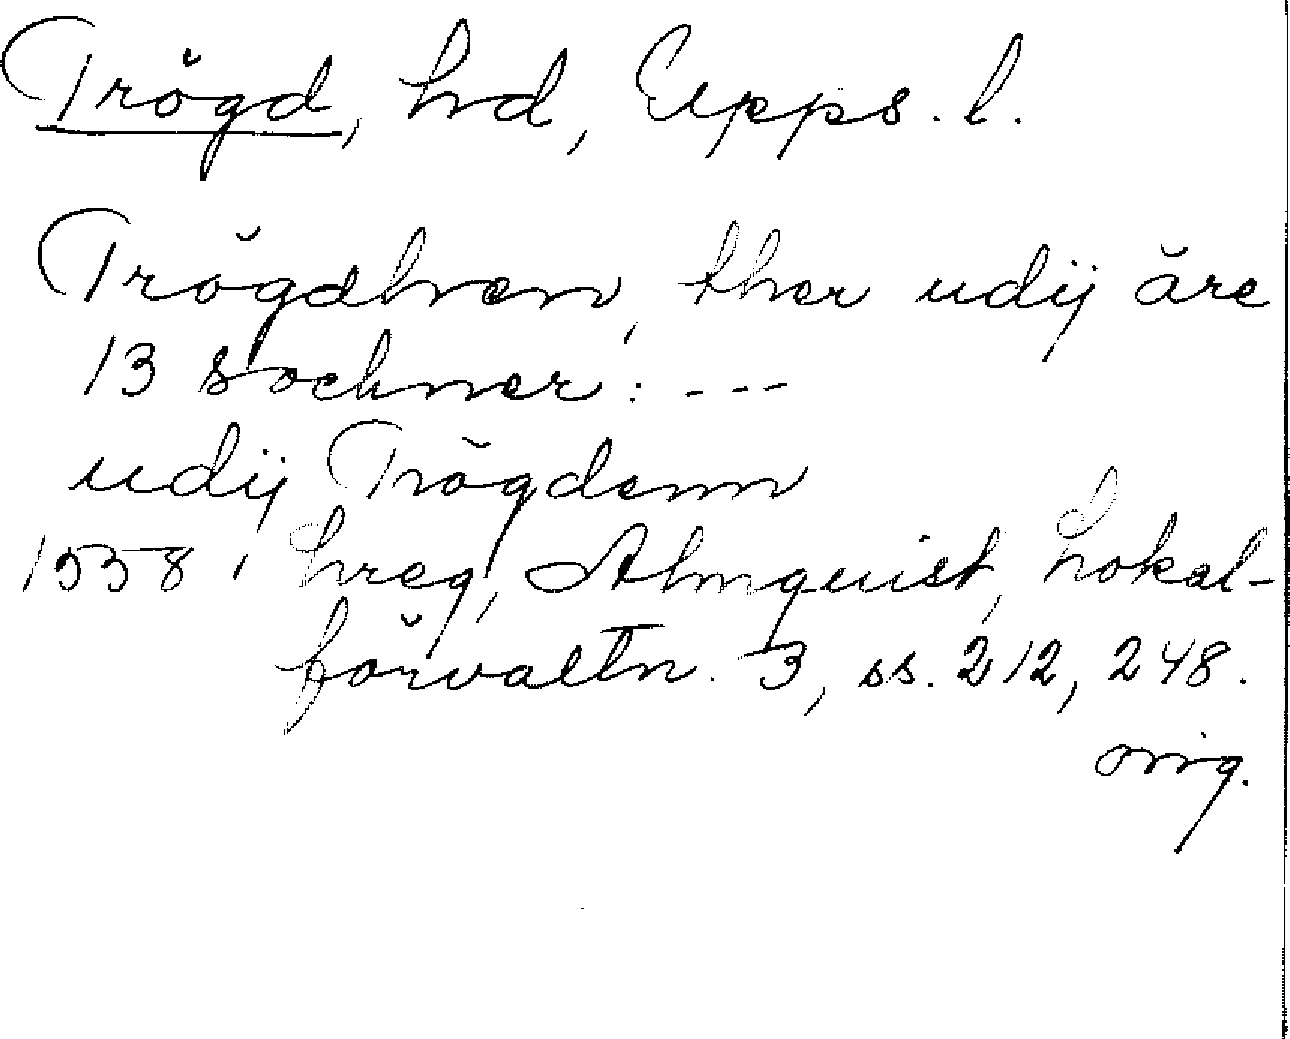 Trögd, hd, Upps. l.
Trögdhenn, ther udij äre
13 sochner: ---
udij Trögdenn
1538, hreg, Almquist, Lokal-
förvaltn. 3, ss. 212, 248.
orig.